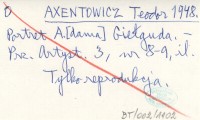 O AXENTOWICZ Teodor 1948.
Portret A.[dama] Giełguda. –
Prz. Artyst. 3, nr 8-9, il.
Tylko reprodukcja.
BT/002/1402